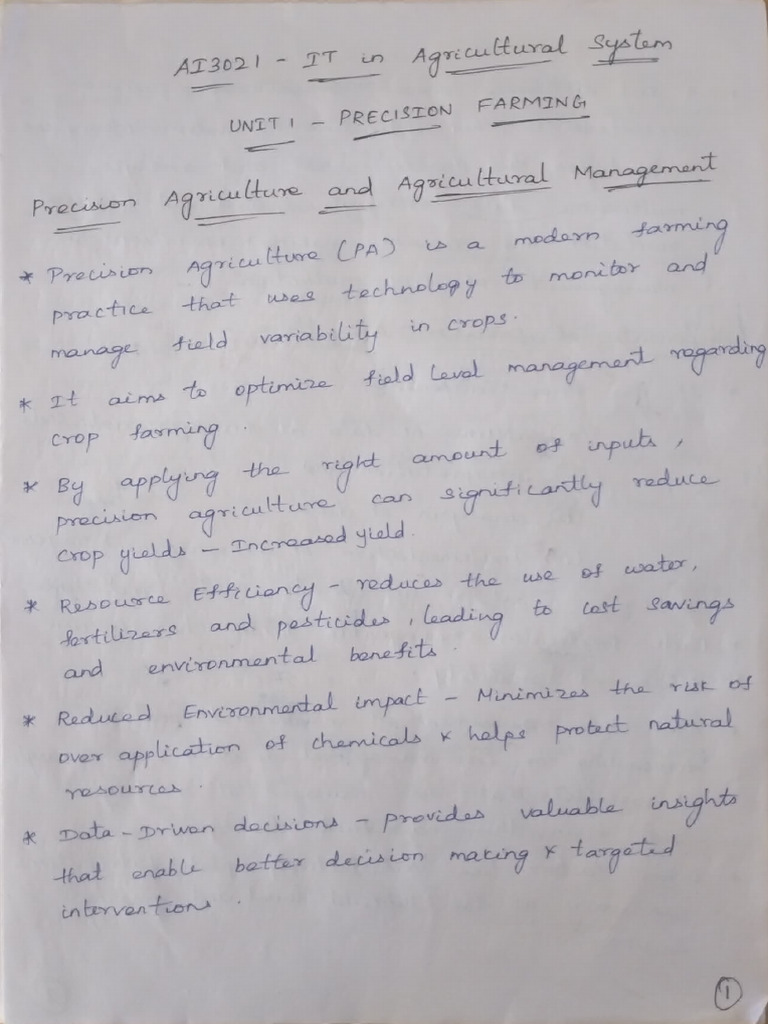 AI3021 - IT in Agricultural System
UNIT 1 - PRECISION FARMING
Precision Agriculture and Agricultural Management
* Precision Agriculture (PA) is a modern farming
practice that uses technology to monitor and
manage field variability in crops.
* It aims to optimize field level management regarding
crop farming.
* By applying the right amount of inputs,
precision agriculture can significantly reduce
crop yields - Increased yield.
* Resource Efficiency - reduces the use of water,
fertilizers and pesticides, leading to cost savings
and environmental benefits.
* Reduced Environmental impact - Minimizes the risk of
over application of chemicals & helps protect natural
resources.
* Data-Driven decisions - provides valuable insights
that enable better decision making & targeted
interventions.
1